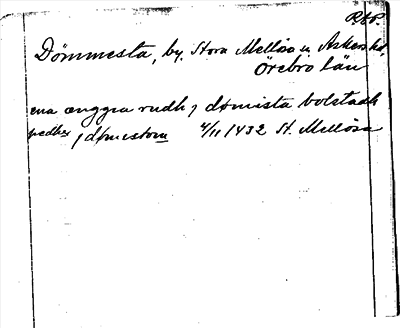 RAP.
Dömmesta, by, Stora Mellösa sn, Askers hd,
Örebro län
ena ænggia rudh j dømista bolstadh
pedher j dømestom 4/11 1432 St. Mellösa